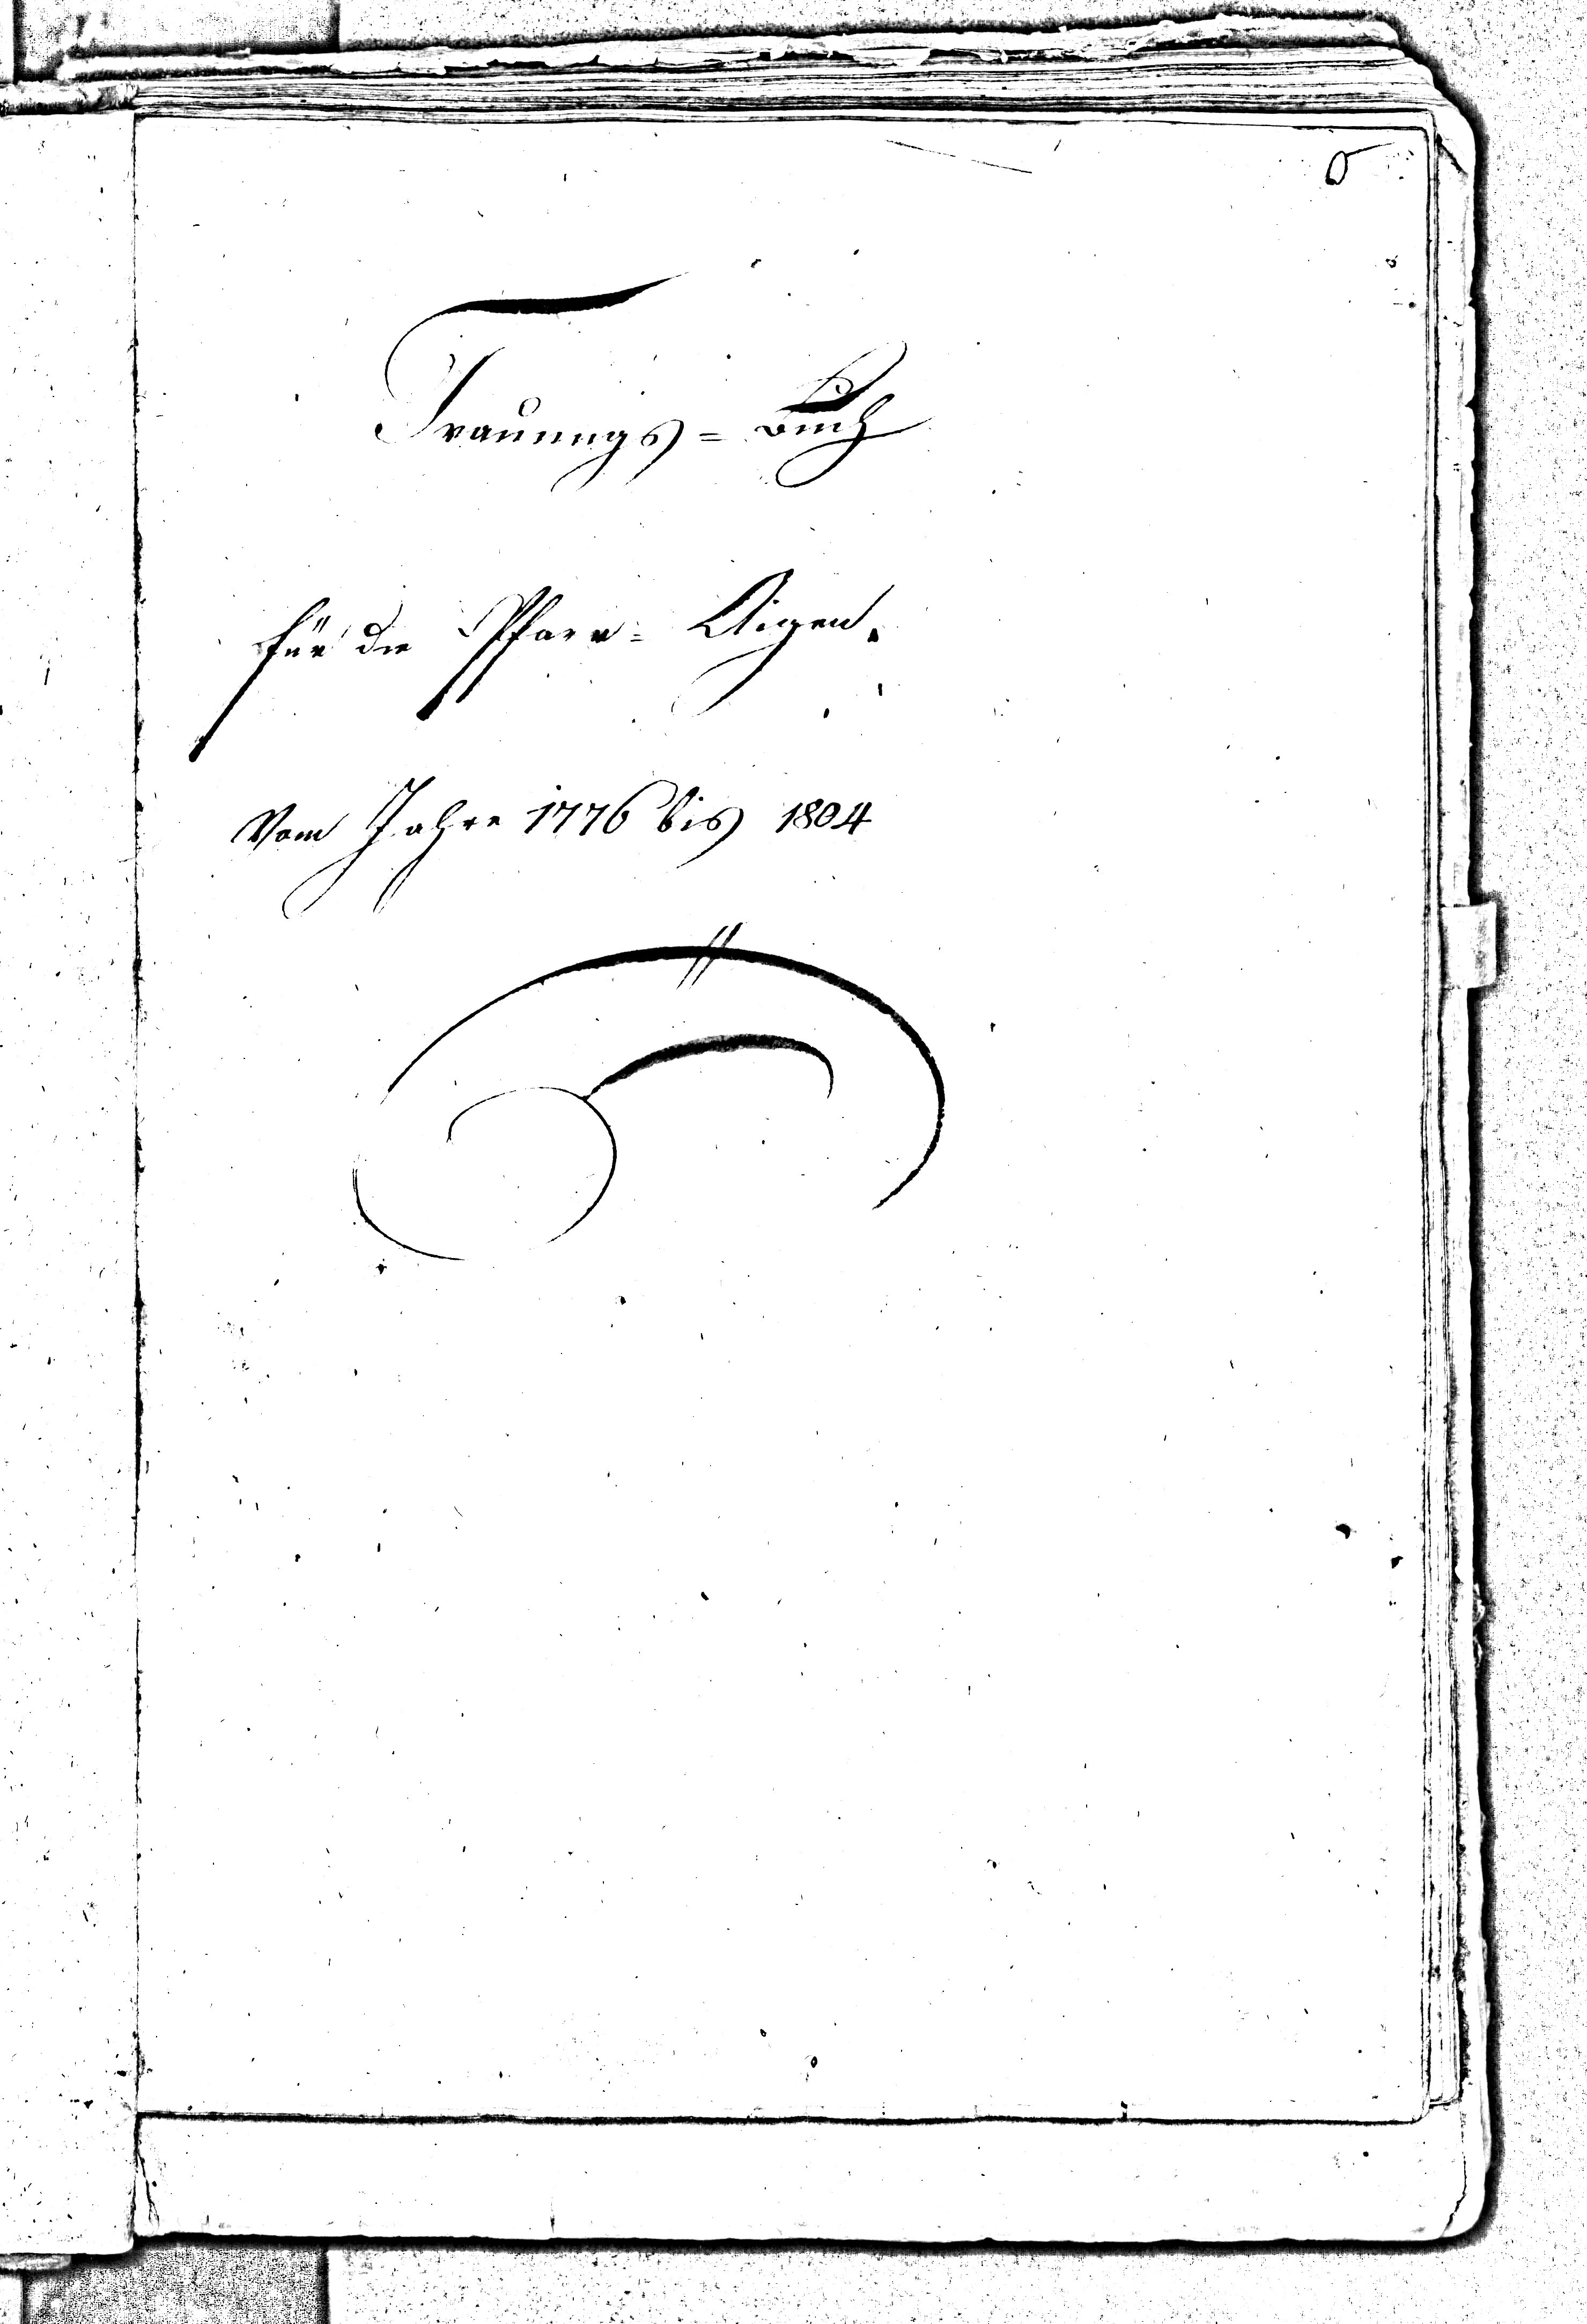 Trauungs = Buch
für die Pfarr = Aigen.
Vom Jahre 1776 bis 1804